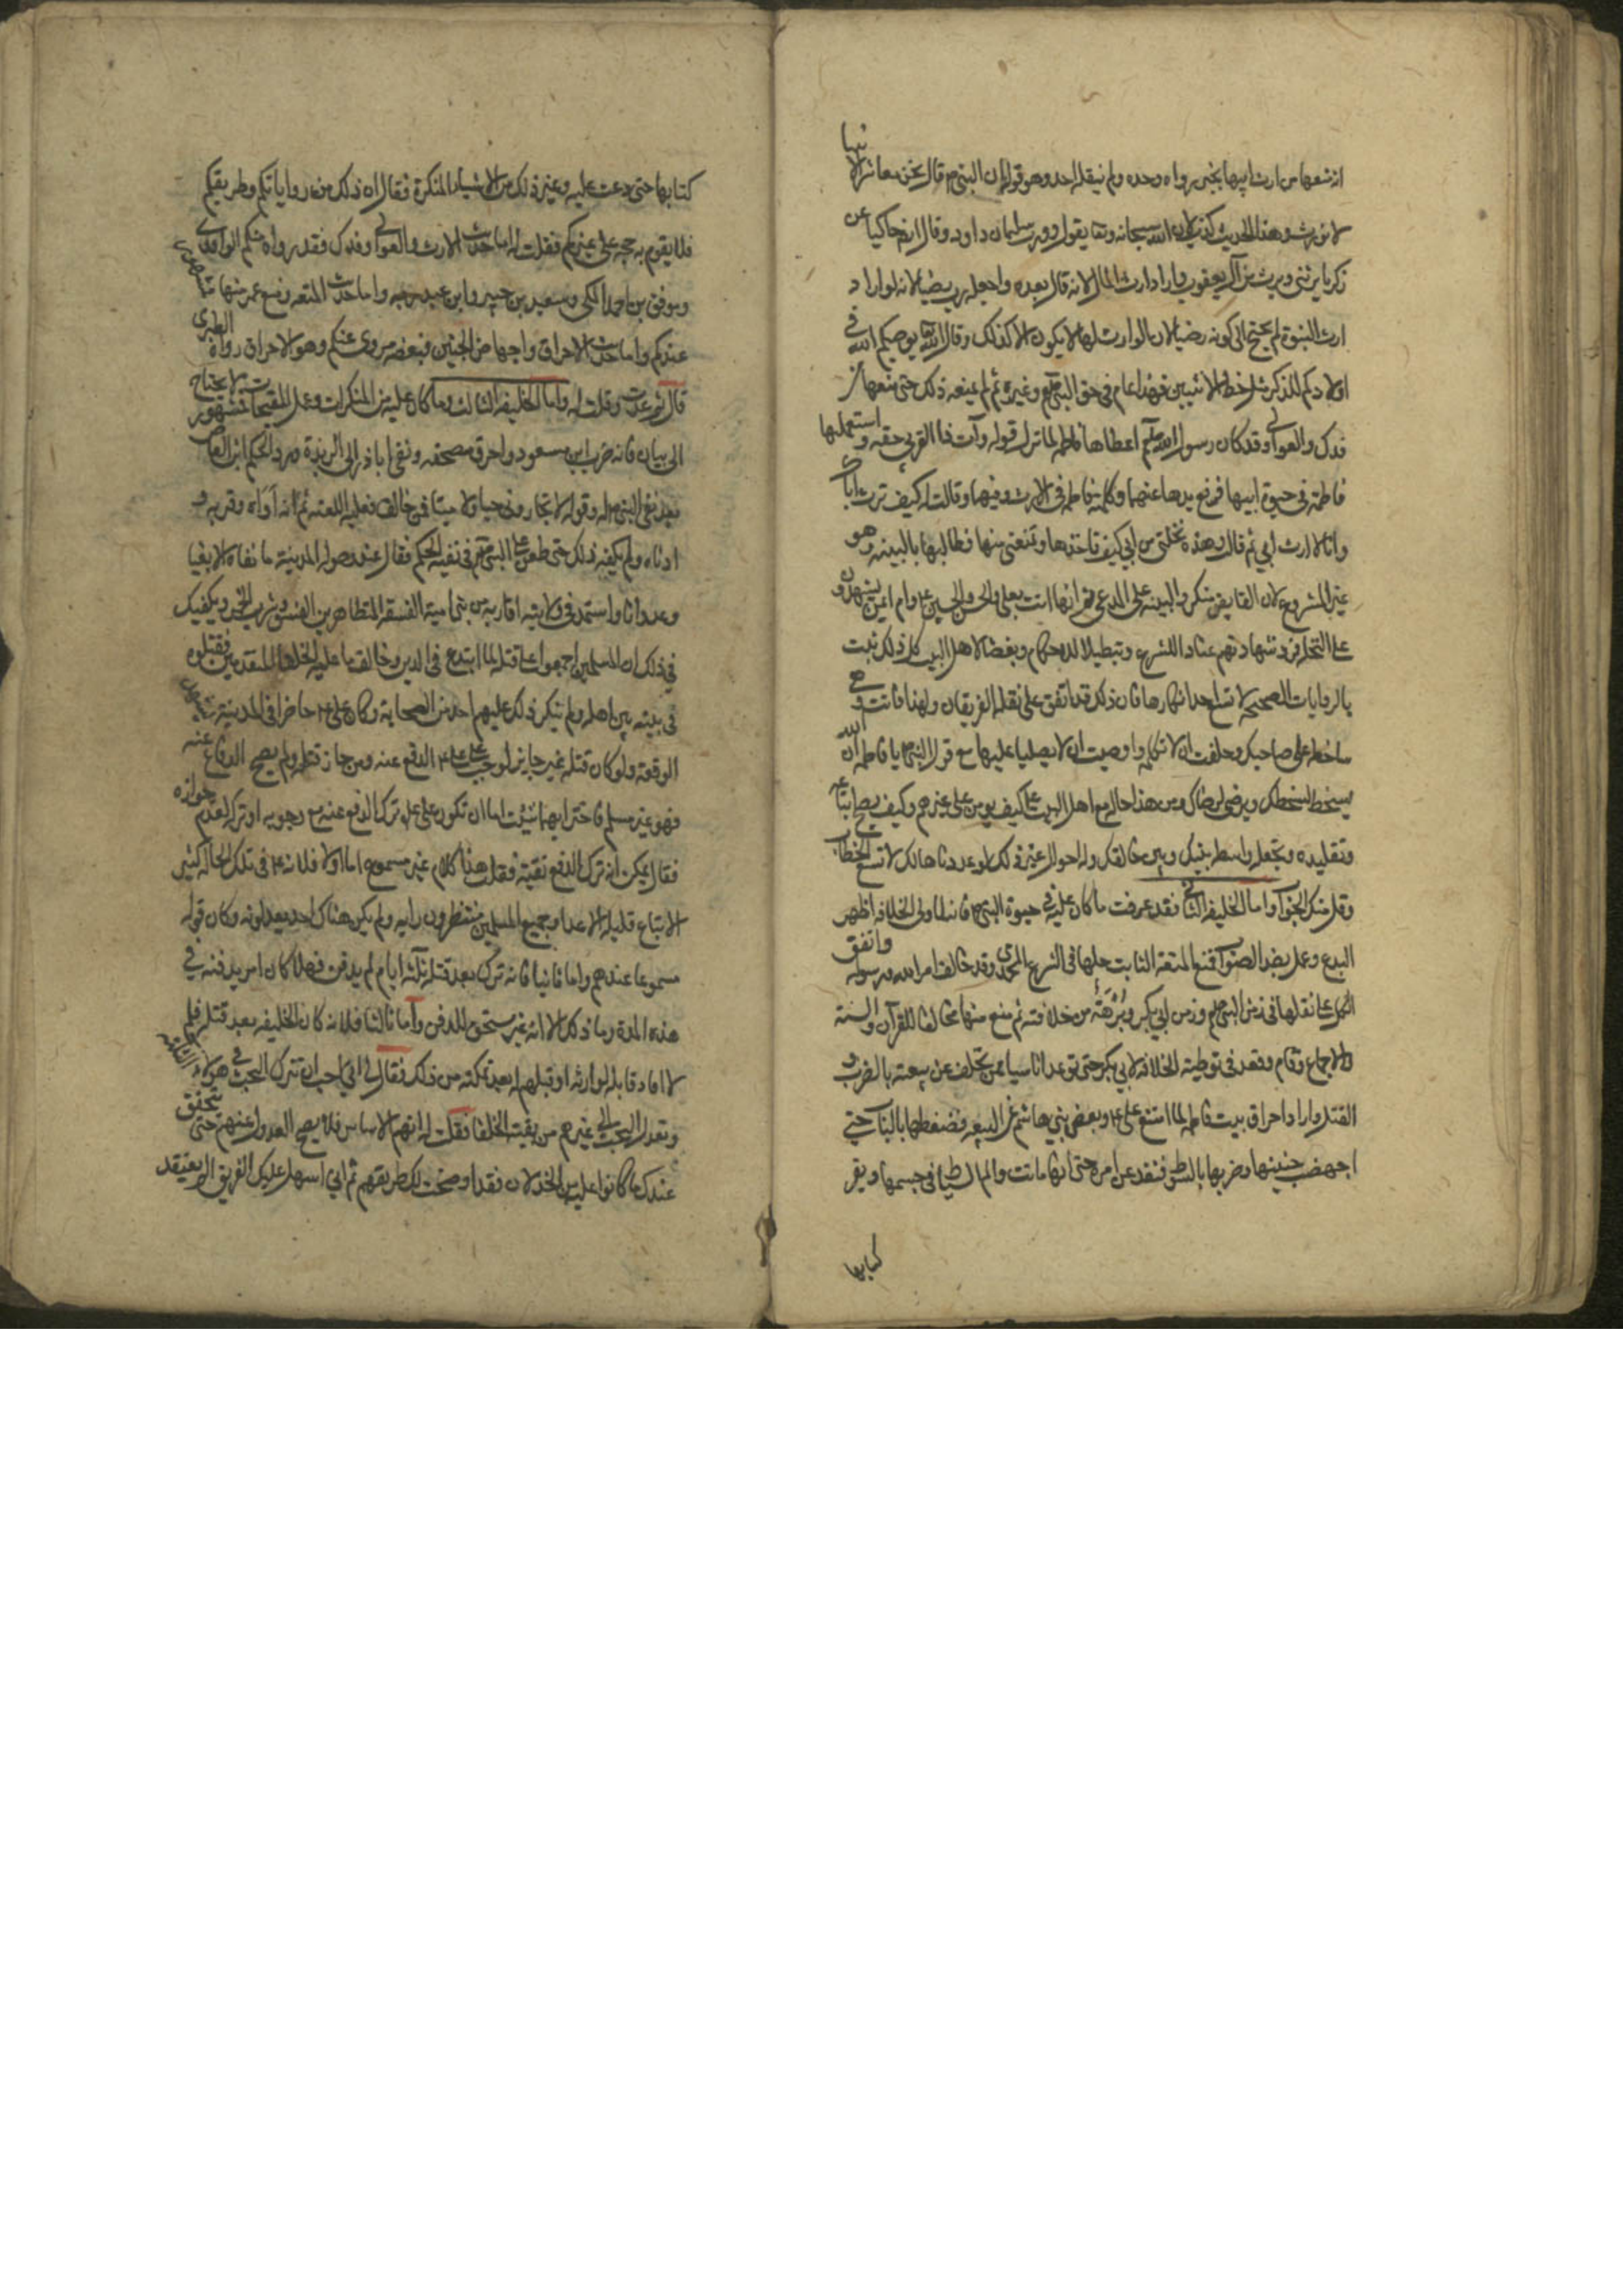 اذ منعها من ارث ابيها بخبر رواه وحده ولم ينقله احد وهو قوله ان النبي ص قال نحن معاشر الانبيا
لا نورث وهذا الحديث كذب لان الله سبحانه وتعا يقول وورث سليمان داود وقال ايضا حاكيا عن
زكريا يرثني ويرث من آل يعقوب واراد ارث المال لانه قال بعده واجعله رب رضيا لانه لو اراد
ارث النبوة لم يحتج الى كونه رضيا لان الوارث لها لا يكون الا كذلك وقال الله تعا يوصيكم الله في
اولادكم للذكر مثل حظ الانثيين فهذا عام في حق النبي ص وغيره ثم لم يمنعه ذلك حتى منعها من
فدك والعوالي وقد كان رسول الله صلعم اعطاها فاطمه لما نزل قوله وآت ذا القربى حقه واستعملها
فاطمة في حيوة ابيها فرفع يدها عنهما وكلمته فاطمه في الارث وفيهما وقالت له كيف ترث اباك
وانا لا ارث ابي ثم قالت وهذه نحلتي من ابي كيف تاخذها وتمنعني منها فطالبها بالبينه وهو
غير المشروع لان القابض منكر والبينه على المدعي ثم انها اتت بعلي والحسن والحسين ع وام ايمن يشهدون
على النحله فرد شهادتهم عنادا للشرع وتبطيلا للاحكام وبغضا لاهل البيت كل ذلك ثبت
بالروايات الصحيحه لا تسع احدا انكارها فان ذلك قد اتفق على نقله الفريقان ولهذا ماتت وهي
ساخطه على صاحبك وحلفت ان لا تكلمه واوصيت ان لا يصليا عليها مع قول النبي ص يا فاطمه ان الله
يسخط لسخطك ويرضى لرضاك ومن هذا حاله مع اهل البيت ع كيف يومن على غيرهم وكيف يصح اتباعه
وتقليده وتجعله واسطه بينك وبين خالقك وله احوال غير ذلك لو عددناها لك لا تسع الخطاب
وقل منك الجواب واما الخليفه الثاني فقد عرفت ما كان عليه في حيوة النبي ص فانه لما ولي الخلافه اظهر
البدع وعمل بضد الصواب فمنع المتعه الثابت حلها في الشرع المحمدي وقد خالف امر الله ورسوله واتفق
الكل على نقلها في زمن النبي صلعم وزمن ابي بكر وبرهة من خلافته ثم منع منها مخالفا للقرآن والسنة
والاجماع وقام وقعد في توطية الخلافه لابي بكر حتى توعد اناسا ممن تخلف عن بيعته بالضرب و
القتل واراد احراق بيت فاطمه لما امتنع علي ع وبعض بني هاشم عن البيعه فضغطها بالباب حتى
اجهضت جنينها وضربها بالسوط فنفد عن امره حتى انها ماتت والم السياط في جسمها ويقر
كتابها
كتابها حتى دعت عليه وغير ذلك من الاشياء المنكرة فقال ان ذلك من رواياتكم وطريقكم
فلا يقوم به حجه على غيركم فقلت له اما حديث الارث والعوالي وفدك فقد رواه منكم الواقدي
وموفق بن احمد المكي وسعيد بن جبير وابن عبد ربه واما حديث المتعه ومنع عمر منها فمشهور
عندكم واما حديث الاحراق واجهاض الجنين فبعضه مروي عنكم وهو الاحراق رواه الطبري
قال ثم عدت وقلت له واما الخليفه الثالث وما كان عليه من المنكرات وعمل القبيحات فمشهور لا يحتاج
الى بيان فانه ضرب ابن مسعود واحرق مصحفه ونفى ابا ذر الى الربذة ورد الحكم ابن العاص
بعد نفي النبي ص له وقوله لا تجاروني حيا ولا ميتا فمن خالف فعليه اللعنه ثم انه آواه وقربه و
ادناه ولم يكفه ذلك حتى طعن على النبي ص في نفيه الحكم فقال عند وصوله المدينة ما نفاه الا بغيا
وعدوانا واستمد في ولايته اقاربه من بني امية الفسقه المتظاهرين الفسق وشرب الخمر ويكفيك
في ذلك ان المسلمين اجمعوا على قتله لما ابتدع في الدين وخالف ما عليه الخلفا المتقدمين فقتلوه
في بيته بين اهله ولم ينكر ذلك عليهم احد من الصحابة وكان علي ع حاضرا في المدينة
الوقعة ولو كان قتله غير جايز لوجب على علي ع الدفع عنه ومن جاز قتله ولم يصح الدفاع عنه
فهو غير مسلم فاختر ايهما شئت اما ان تكون على علي ترك الدفع عنه مع وجوبه او تركه لعدم جوازه
فقال يمكن انه ترك الدفع تقية فقلت هذا كلام غير مسموع اما اولا فلانه ع في تلك الحاله كثير
الاتباع قليل الاعدا وجميع المسلمين منتظرون رايه ولم يكن هناك احد يعدلونه وكان قوله
مسموعا عندهم واما ثانيا فانه ترك بعد قتله ثلثه ايام لم يدفن فهلا كان امر بدفنه في
هذه المدة وما ذلك الا انه غير مستحق للدفن واما ثالثا فلانه كان الخليفه بعد قتله فلم
لا افاد قاتله لوارثه او قبلهم له بعد تمكنه من ذلك فقال لي اني احب ان تترك البحث في هولاء الثلثه
وتعدل البحث الى غيرهم من بقية الخلفا فقلت له انهم الاساس فلا يصح العدول عنهم حتى يتحقق
عندك ما كانوا عليه من الخذلان فقد اوضحت لك طريقهم ثم اني اسهل عليك الفريق الى يعتقد